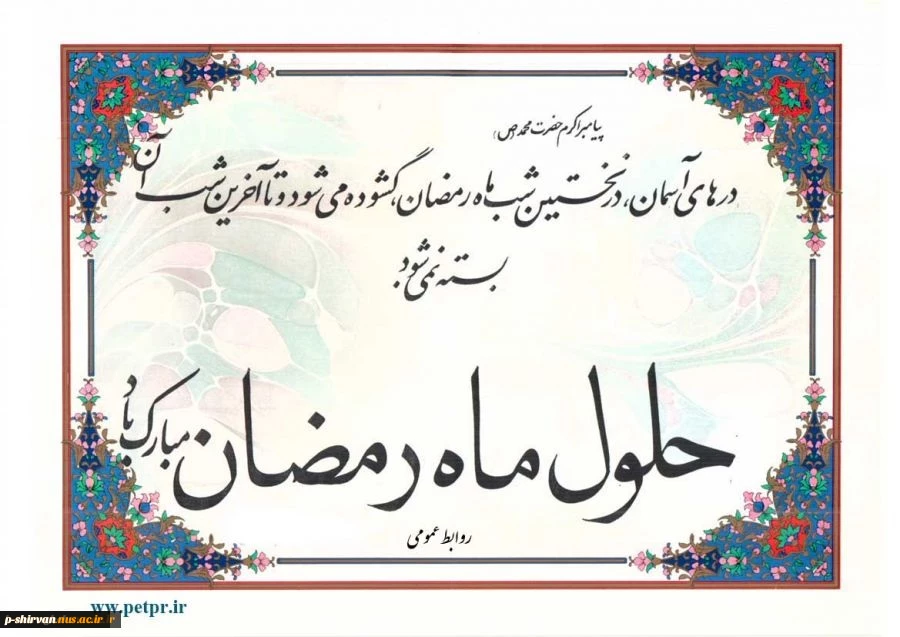 پیامبر اکرم حضرت محمد (ص)
درهای آسمان، در نخستین شب ماه رمضان، گشوده می شود و تا آخرین شب آن
بسته نمی شود
حلول ماه رمضان مبارک باد
روابط عمومی
www.petpr.ir
p-shirvan.nus.ac.ir